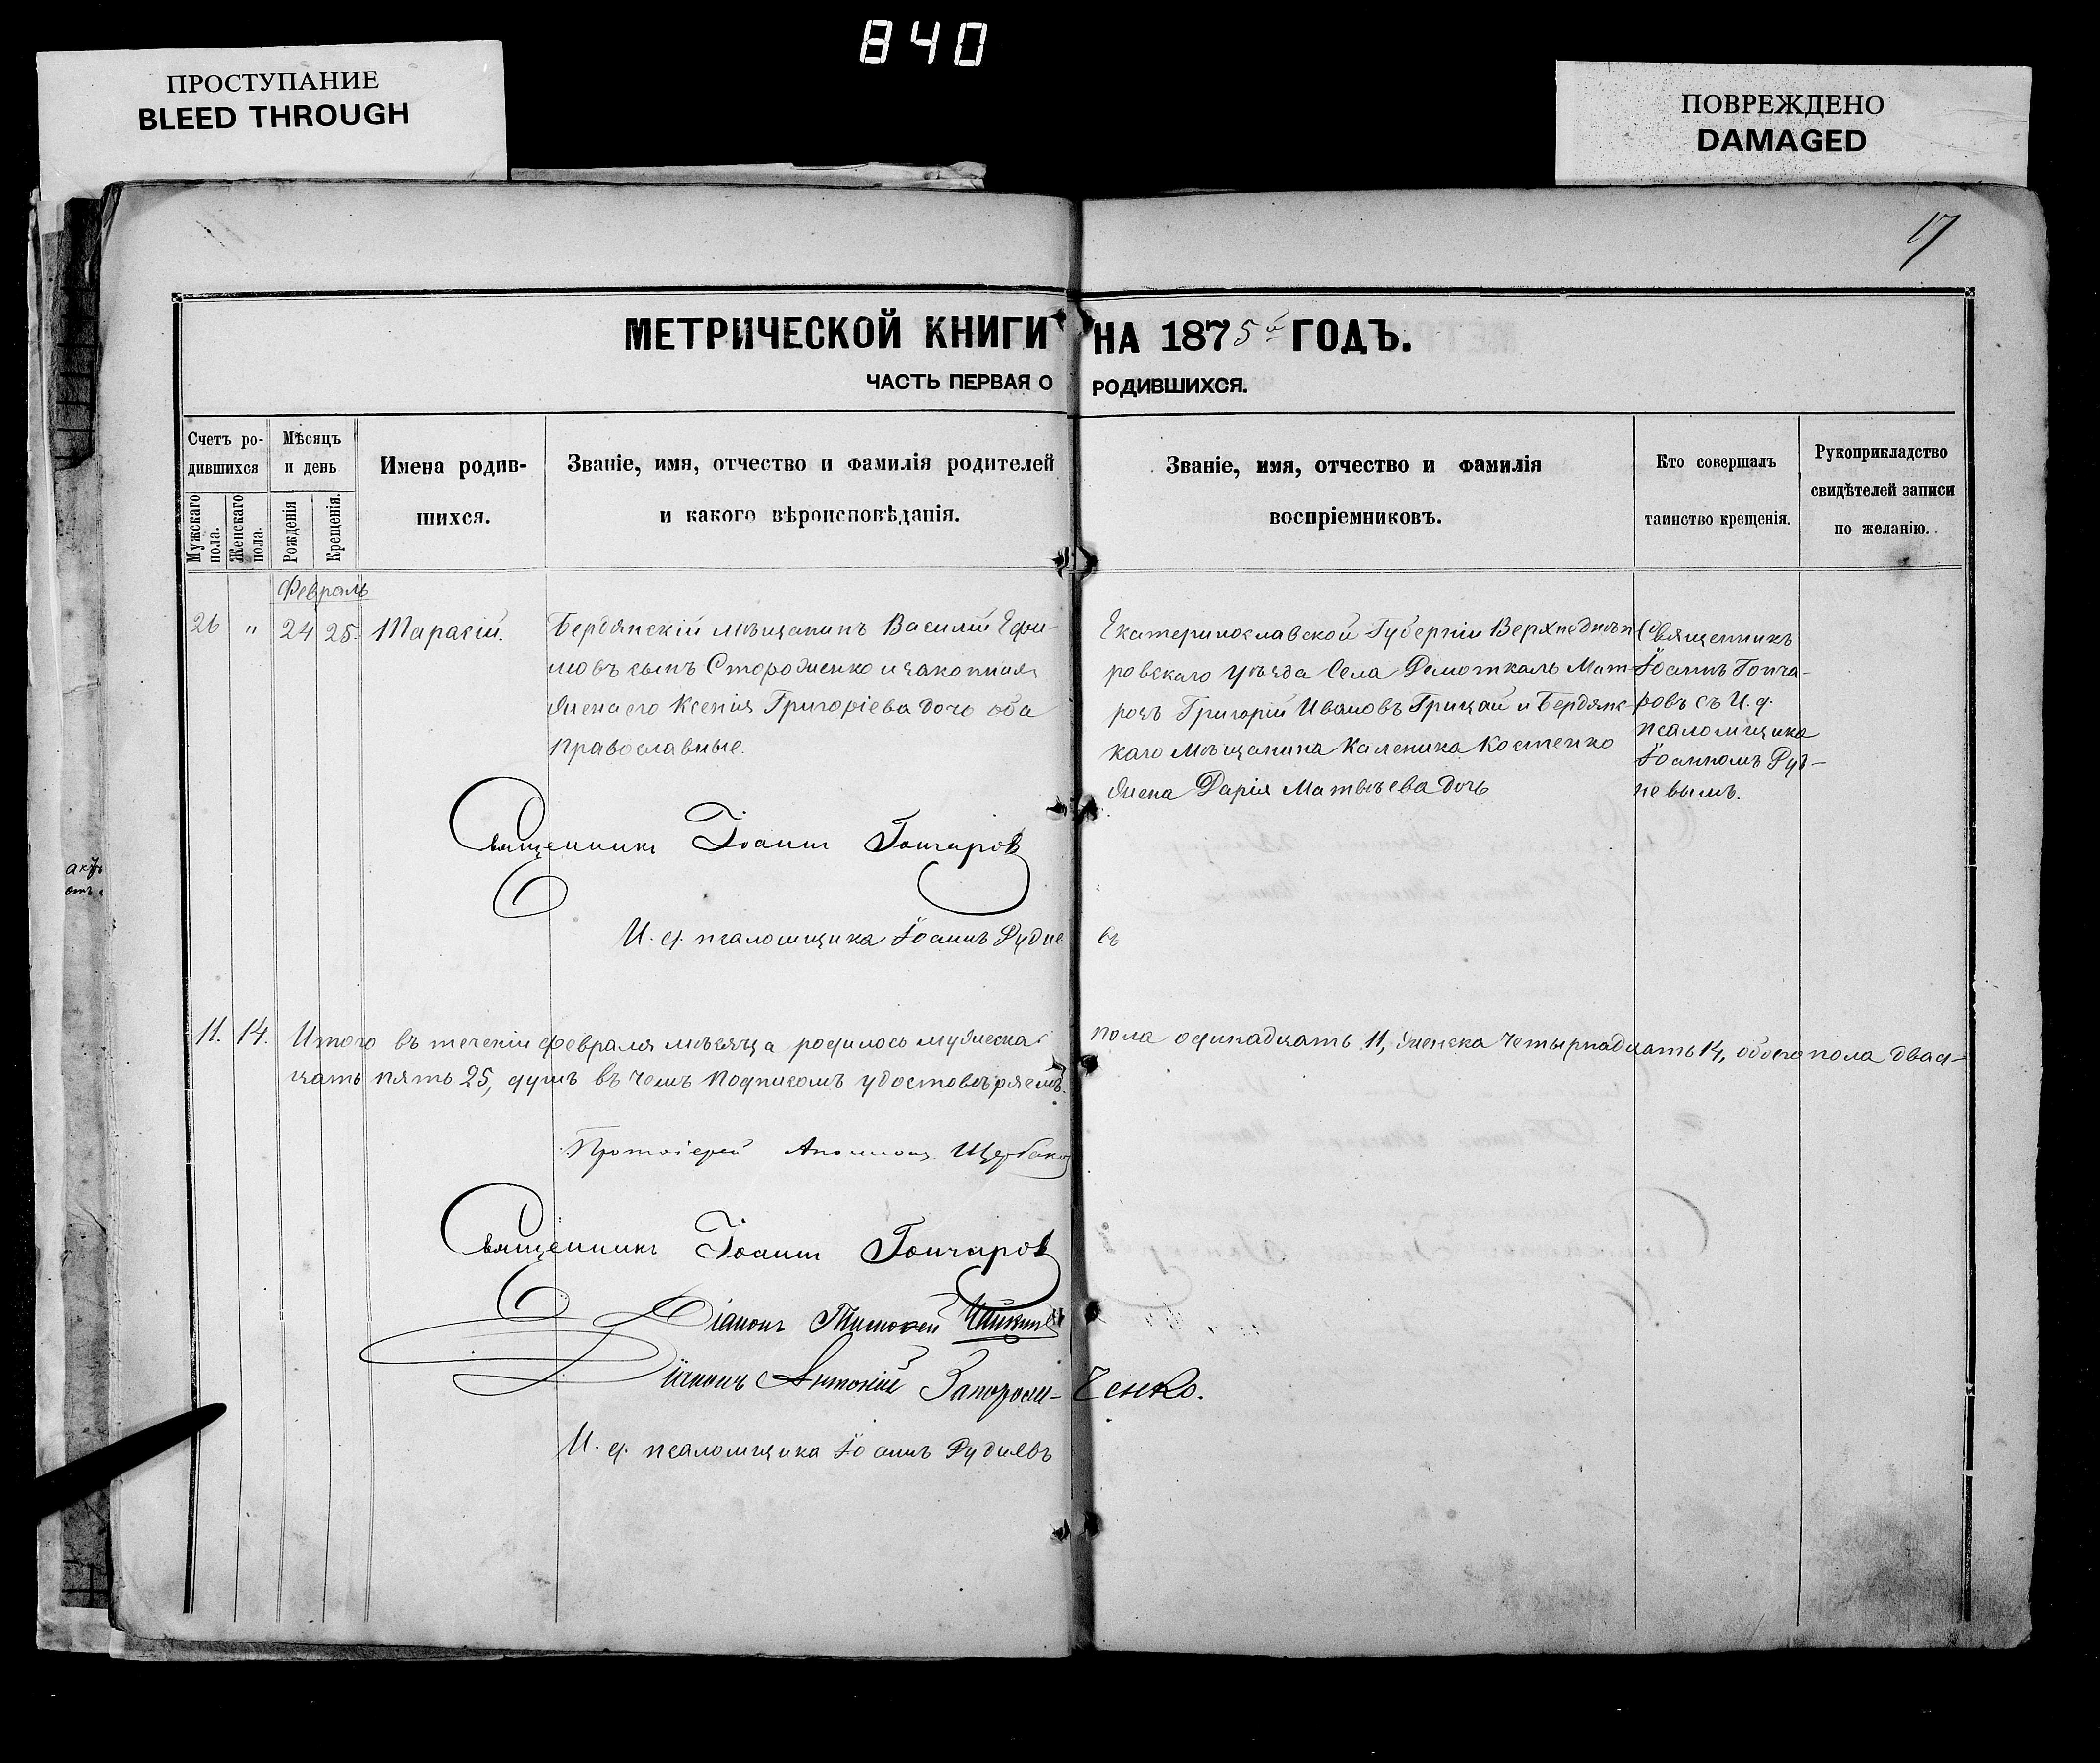 840
ПРОСТУПАНИЕ
BLEED THROUGH
ПОВРЕЖДЕНО
DAMAGED
17
МЕТРИЧЕСКОЙ КНИГИ НА 1875й ГОДЪ.
ЧАСТЬ ПЕРВАЯ О РОДИВШИХСЯ.
Счетъ ро-
дившихся
Мужскаго пола.
Женскаго пола.
Мѣсяцъ
и день
Рожденія
Крещенія.
Имена родив-
шихся.
Званіе, имя, отчество и фамилія родителей
и какого вѣроисповѣданія.
Званіе, имя, отчество и фамилія
воспріемниковъ.
Кто совершалъ
таинство крещенія.
Рукоприкладство
свидѣтелей записи
по желанію.
Февраль
26 " 24 25. Тарасій.
Бердянскій мѣщанинъ Василій Ефи-
мовъ сынъ Стороженко и законная
жена его Ксенія Григоріева дочь оба
православные.
Екатеринославской Губерніи Верхнеднѣп
ровскаго уѣзда Села Домоткань Мат-
росъ Григорій Ивановъ Грицай и Бердянс-
каго мѣщанина Каленика Костенко
жена Дарія Матвѣева дочь
Священникъ
Іоаннъ Гонча-
ровъ съ И. д.
псаломщика
Іоанномъ Руд-
невымъ.
Священникъ Іоаннъ Гончаровъ
И. д. псаломщика Іоаннъ Рудневъ
11. 14. Итого въ теченіи февраля мѣсяца родилось мужеска пола одинадцать 11, женска четырнадцать 14, обоего пола двад-
цать пять 25, душъ въ чемъ подписомъ удостовѣряемъ.
Протоіерей Щербаков
Священникъ Іоаннъ Гончаровъ
Діаконъ Тимофей
Діаконъ Антоній Запорож-ченко.
И. д. псаломщика Іоаннъ Рудневъ